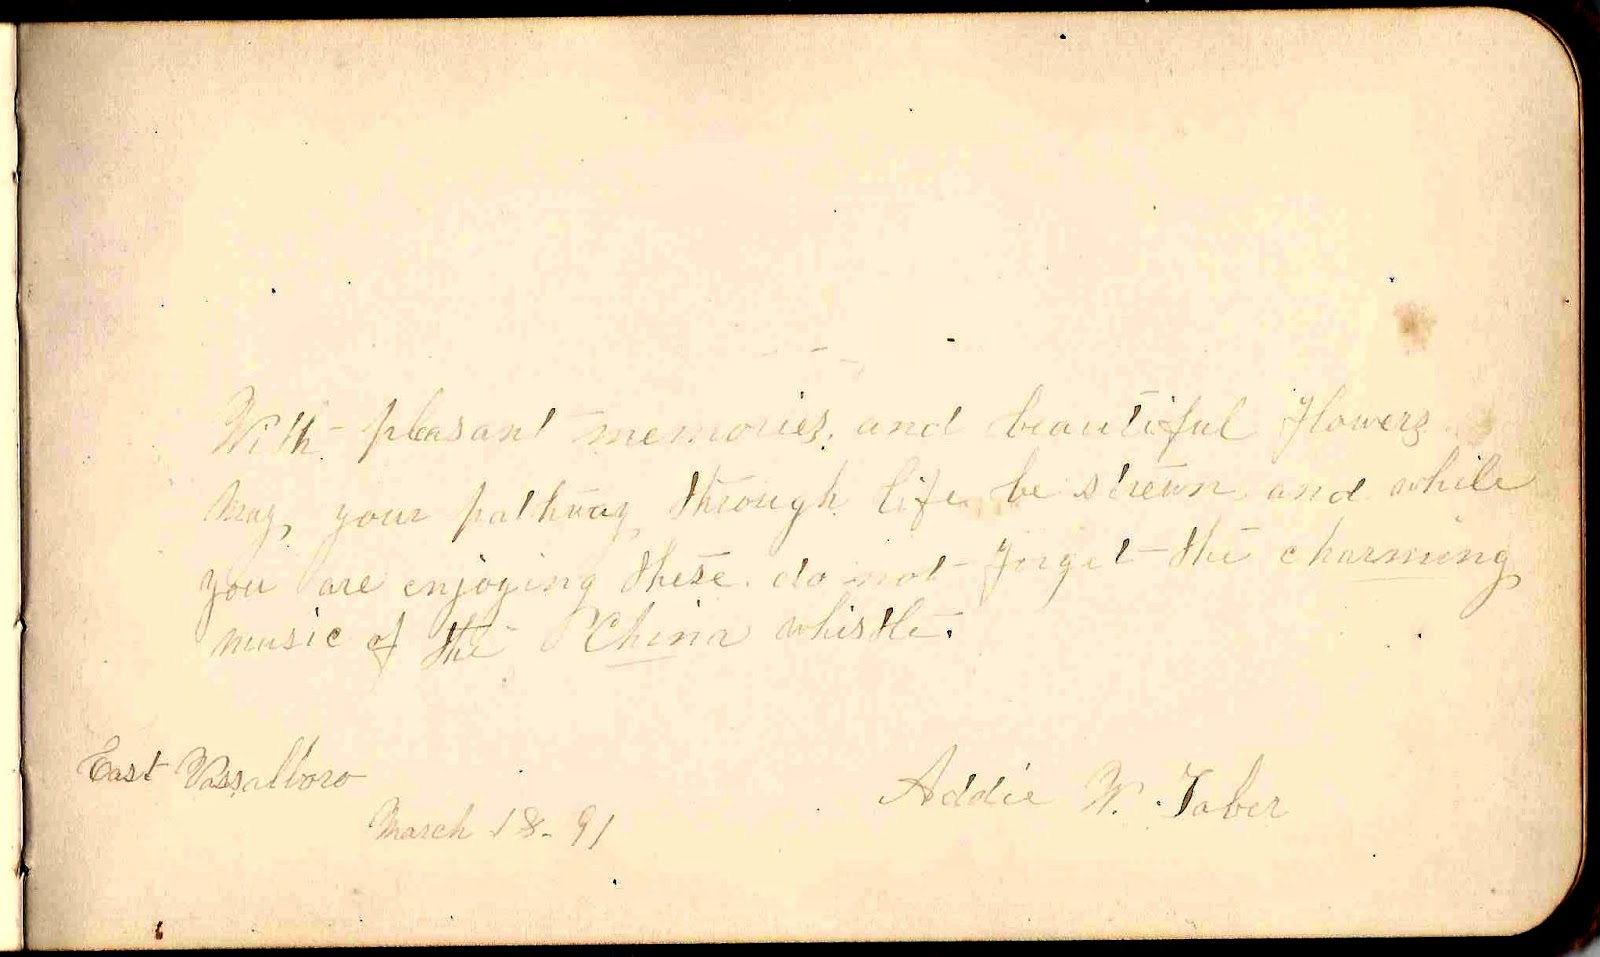 With pleasant memories, and beautiful flowers
May, your pathway through life be strewn and while
you are enjoying these. do not forget the charming
music of the China whistle.
East Vassalboro
March 18-91
Addie W. Taber